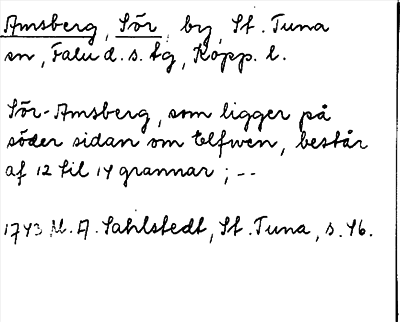 Amsberg, Sör, by, St. Tuna
sn, Falu d. s. tg, Kopp. l.
Sör-Amsberg, som ligger på
söder sidan om Elfwen, består
af 12 til 14 grannar; --
1743 M. A. Sahlstedt, St. Tuna, s. 46.